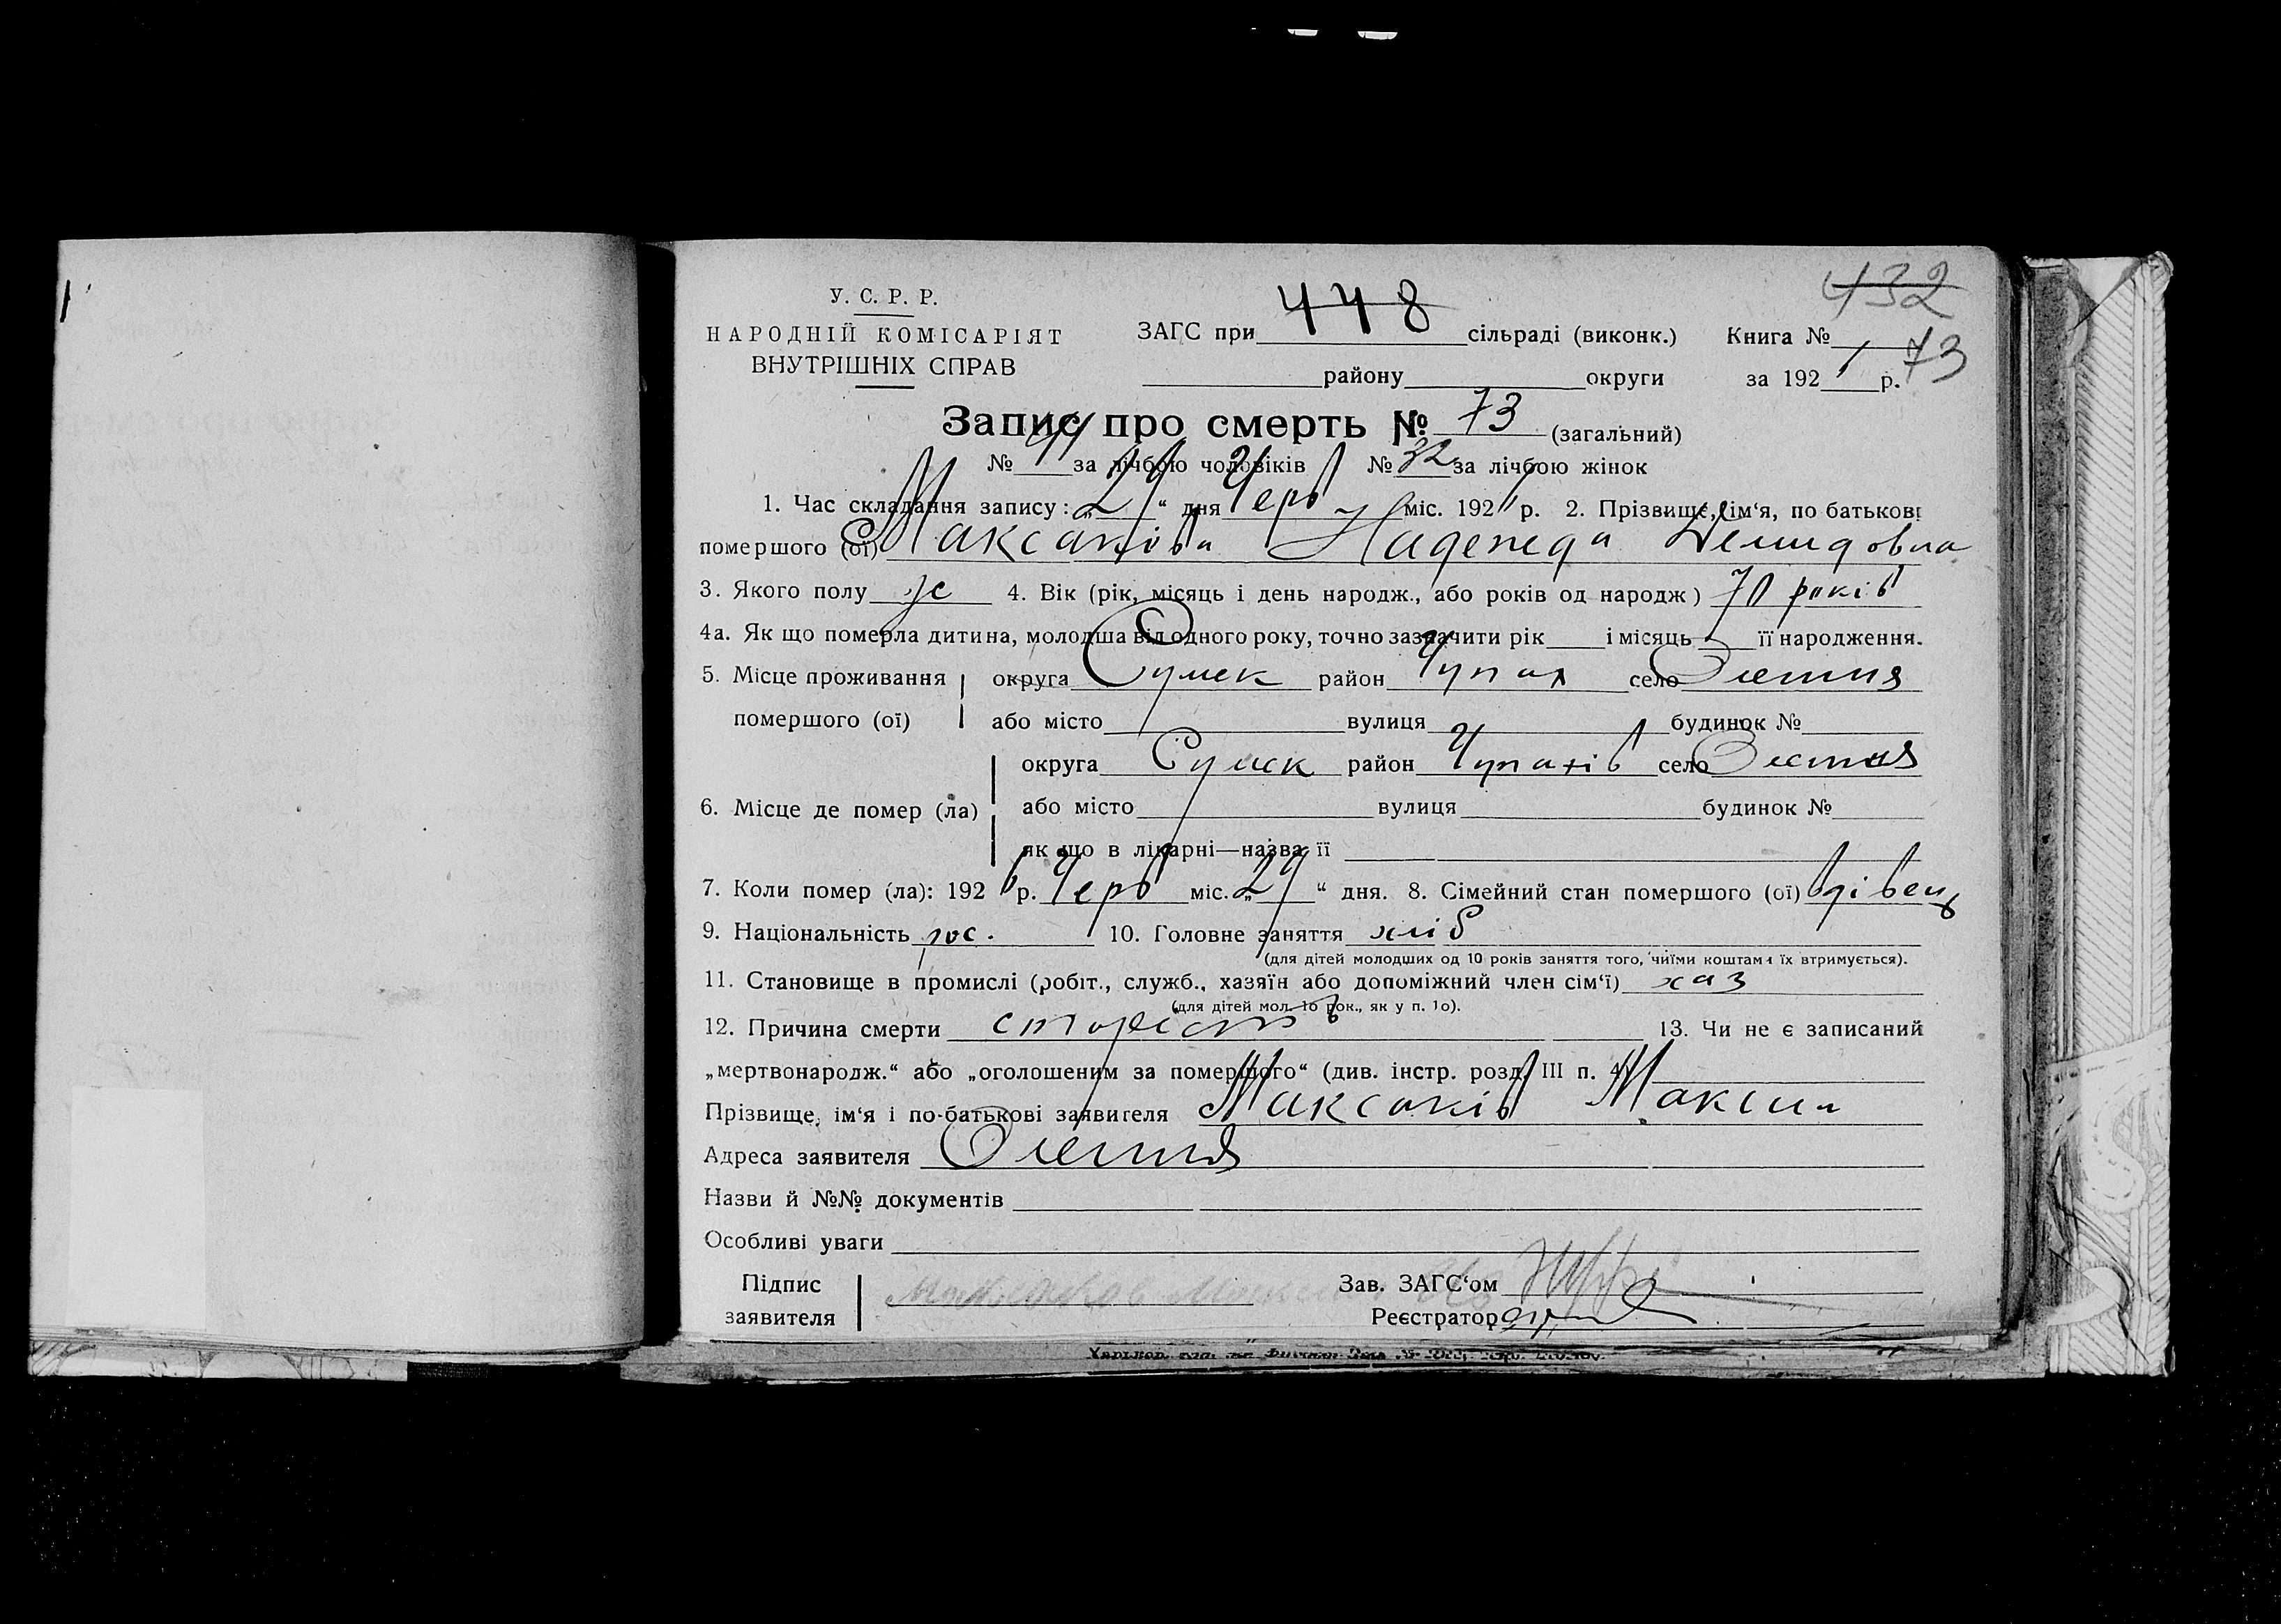 432
У. С. Р. Р.
НАРОДНІЙ КОМІСАРІЯТ
ВНУТРІШНІХ СПРАВ
ЗАГС при 448 сільраді (виконк.) Книга № 73
району округи за 192 р.
Запис про смерть № 73 (загальний)
№ 41 за лічбою чоловіків № 32 за лічбою жінок
1. Час складання запису: „29“ дня Черв міс. 192 р. 2. Прізвище, ім‘я, по батькові
помершого (ої) Максаківа Надежда Демидовна
3. Якого полу ж 4. Вік (рік, місяць і день народж., або років од народж) 70 років
4а. Як що померла дитина, молодша від одного року, точно зазначити рік і місяць її народження.
5. Місце проживання округа Сумск район Чупах село Олешня
помершого (ої) або місто вулиця будинок №
округа Сумск район Чупахів село Олешня
6. Місце де помер (ла) або місто вулиця будинок №
як що в лікарні—назва її
7. Коли помер (ла): 1926 р. Черв міс. „29“ дня. 8. Сімейний стан помершого (ої) вдівец
9. Національність рос. 10. Головне заняття хліб
(для дітей молодших од 10 років заняття того, чиїми коштами їх втримується).
11. Становище в промислі (робіт., служб., хазяїн або допоміжний член сім‘ї) хаз
(для дітей мол. 10 рок., як у п. 10).
12. Причина смерти старість 13. Чи не є записаний
„мертвонародж.“ або „оголошеним за помершого“ (див. інстр. розд. III п. 4)
Прізвище, ім‘я і по-батькові заявителя Максаків Максим
Адреса заявителя Олешня
Назви й №№ документів
Особливі уваги
Підпис заявителя Максаков
Зав. ЗАГС‘ом
Реєстратор